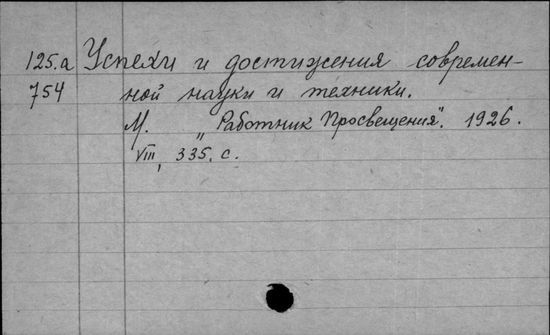 125.а Успехи и достижения современ-
754 ной науки и техники.
М. „Работник Просвещения". 1926.
VIII, 335, с.